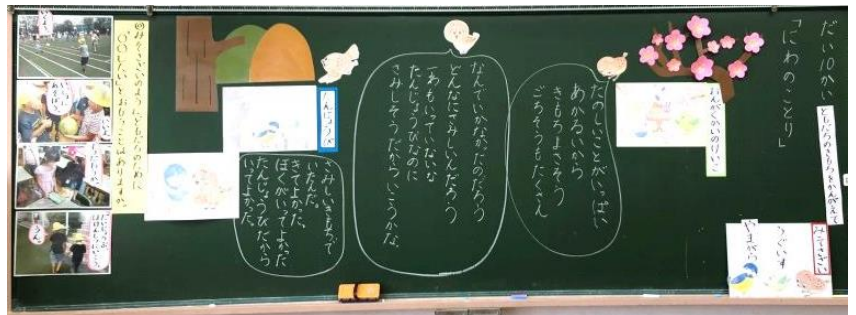 だい10かい
ともだちのきもちをかんがえて
「にわのことり」
みそさざい
うぐいす
やまがら
おんがくかいのけいこ
たのしいことがいっぱい
あかるいから
きもちよさそう
ごちそうもたくさん
なんでいかなかったのだろう
どんなにさみしいんだろう
一わもいっていないな
たんじょうびなのに
さみしそうだからいこうかな。
たんじょうび
さみしいきもちで
いたんだ。
きてよかった。
ぼくがいってよかった
たんじょうびだから
いてよかった。
◎みそさざいのようにともだちのために
「○○したい」とおもったことはありますか。